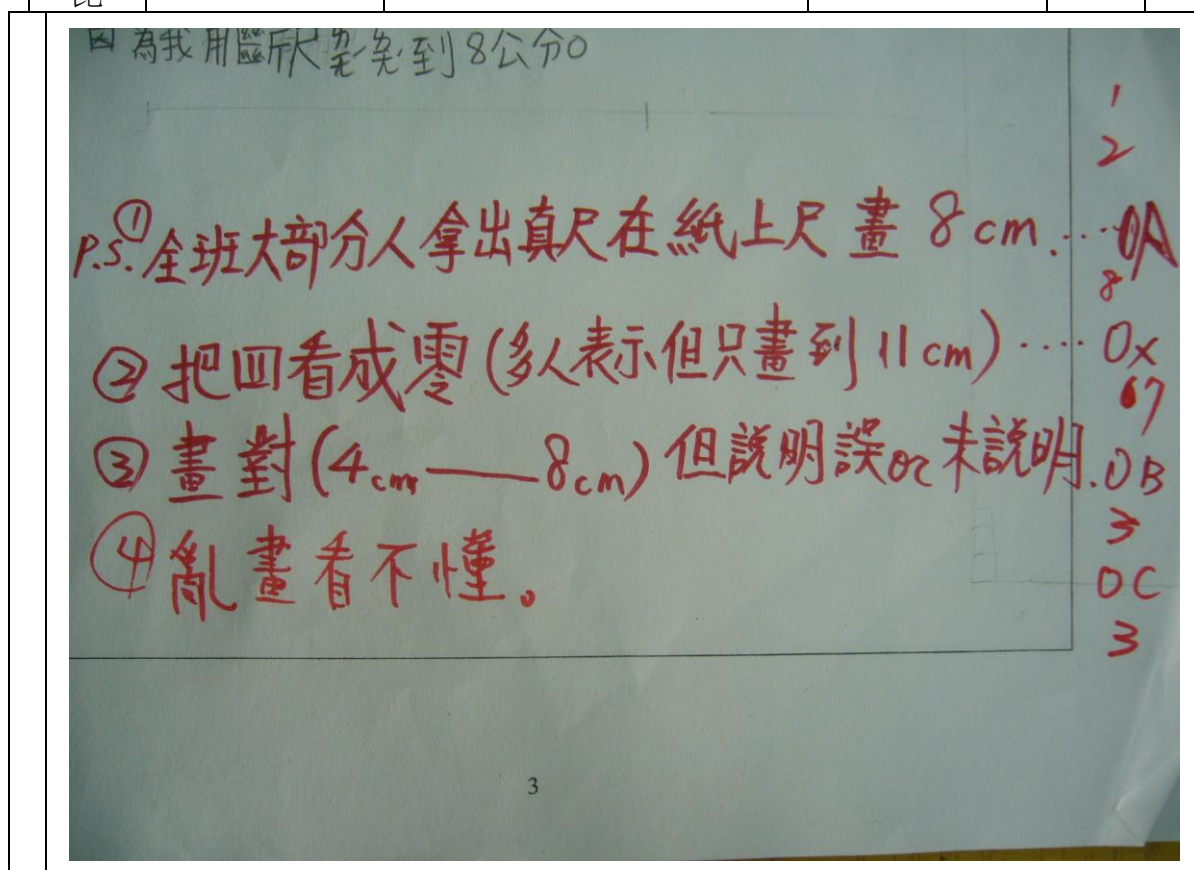 因為我用 到8公分。
1
2
P.S.①全班大部分人拿出真尺在紙上尺畫8cm.…0A
8
②把四看成零(多人表示但只畫到11cm)…0x
67
③畫對(4cm——8cm)但說明誤or未說明.0B
3
④亂畫看不懂。
0C
3
3